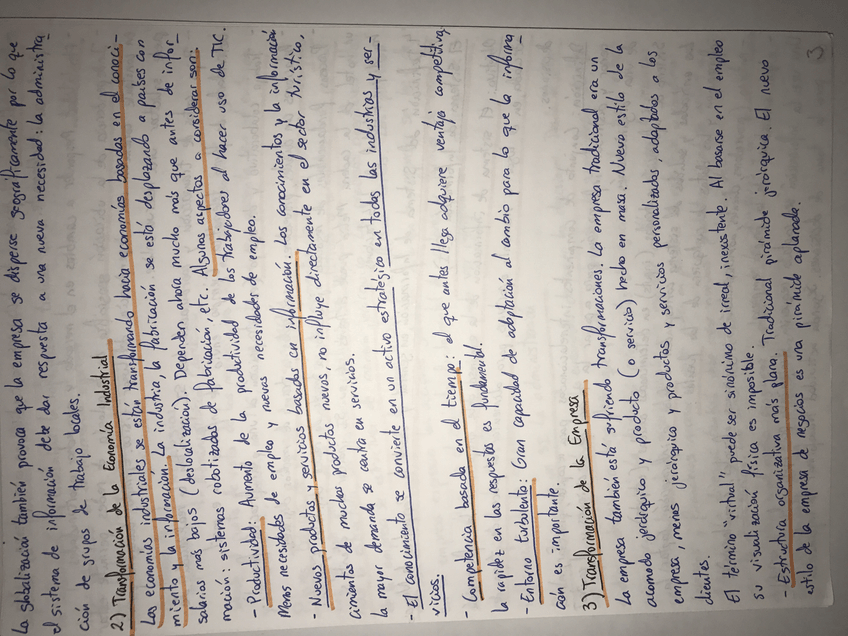 La globalización también provoca que la empresa se disperse geográficamente por lo que
el sistema de información debe dar respuesta a una nueva necesidad: la administra
ción de grupos de trabajo locales.
2) Transformación de la Economía Industrial
Las economías industriales se están transformando hacia economías basadas en el conoci-
miento y la información. La industria, la fabricación se está desplazando a países con
salarios más bajos (deslocalización). Dependen ahora mucho más que antes de infor-
mación: sistemas robotizados de fabricación, etc. Algunas aspectos a considerar son:
- Productividad: Aumento de la productividad de los trabajadores al hacer uso de TIC.
Menos necesidades de empleo y nuevas necesidades de empleo.
- Nuevos productos y servicios basados en información. Los conocimientos y la información
cimientos de muchos productos nuevos, no influye directamente en el sector turístico,
la mayor demanda se centra en servicios.
- El conocimiento se convierte en un activo estratégico en todas las industrias y ser-
vicios.
- Competencia basada en el tiempo: el que antes llega adquiere ventaja competitiva,
la rapidez en las respuestas es fundamental.
- Entorno turbulento: Gran capacidad de adaptación al cambio para lo que la informa
ción es importante.
3) Transformación de la Empresa
La empresa también está sufriendo transformaciones. La empresa tradicional era un
acomodo jerárquico y producto (o servicio) hecho en masa. Nuevo estilo de la
empresa, menos jerárquico y productos y servicios personalizados, adaptados a los
clientes.
El término "virtual" puede ser sinónimo de irreal, inexistente. Al basarse en el empleo
su visualización física es imposible.
- Estructura organizativa más plana. Tradicional pirámide jerárquica. El nuevo
estilo de la empresa de negocios es una pirámide aplanada.
3